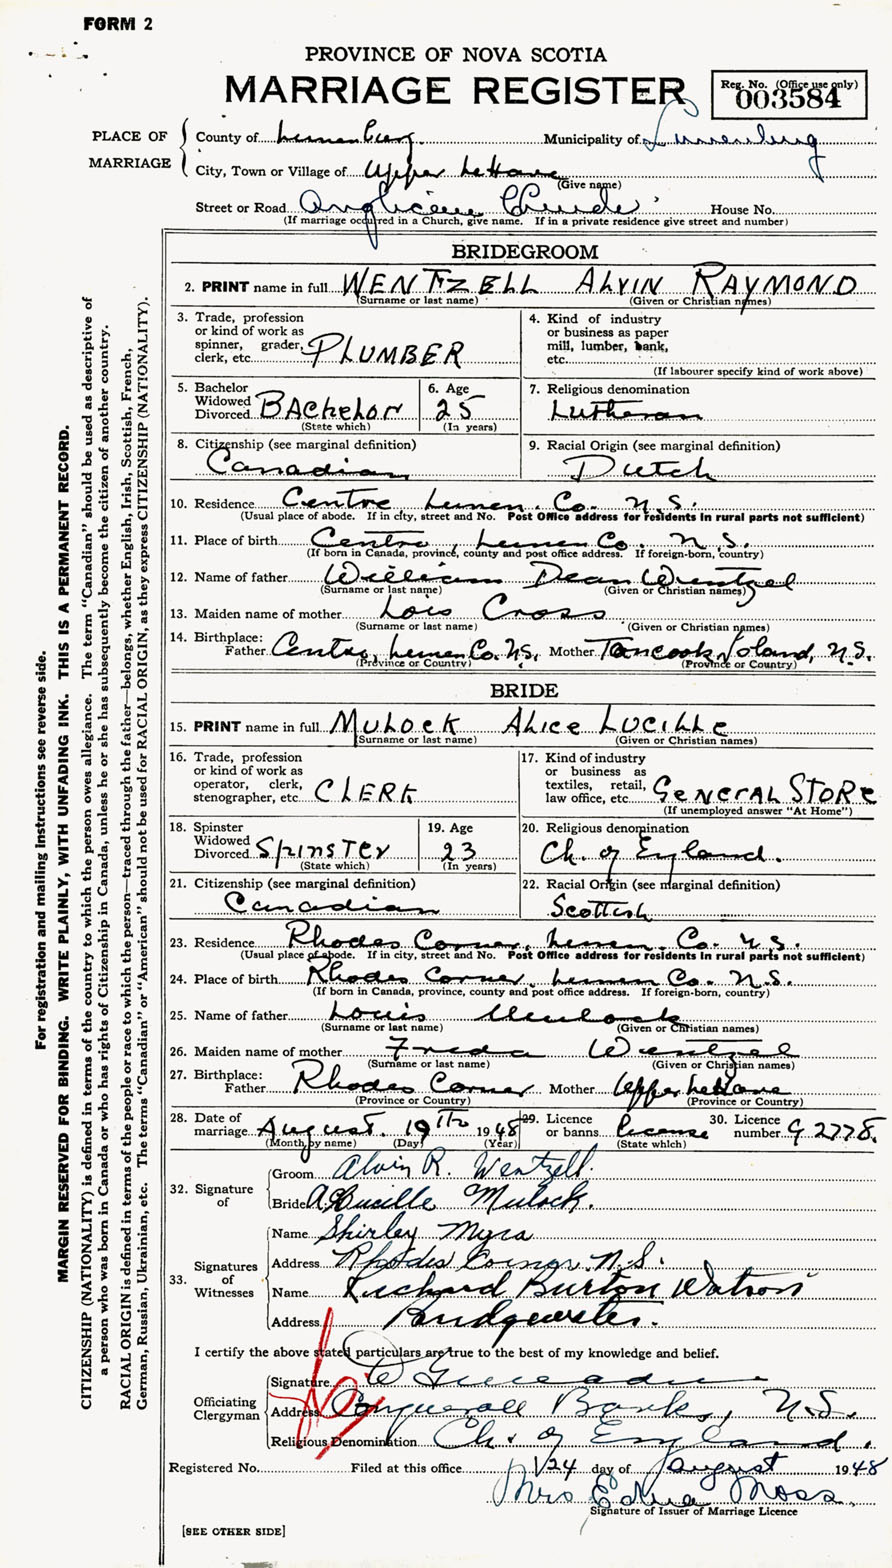 FORM 2
PROVINCE OF NOVA SCOTIA
MARRIAGE REGISTER
Reg. No. (Office use only)
003584
PLACE OF MARRIAGE
County of Lunenburg. Municipality of Lunenburg
City, Town or Village of Upper LaHave
(Give name)
Street or Road Anglican Church House No.
(If marriage occurred in a Church, give name. If in a private residence give street and number)
BRIDEGROOM
2. PRINT name in full WENTZELL ALVIN RAYMOND
(Surname or last name) (Given or Christian names)
3. Trade, profession or kind of work as spinner, grader, clerk, etc. PLUMBER
4. Kind of industry or business as paper mill, lumber, bank, etc.
(If labourer specify kind of work above)
5. Bachelor Widowed Divorced BAchelor
(State which)
6. Age 25
(In years)
7. Religious denomination Lutheran
8. Citizenship (see marginal definition) Canadian
9. Racial Origin (see marginal definition) Dutch
10. Residence Centre Lunen. Co. N.S.
(Usual place of abode. If in city, street and No. Post Office address for residents in rural parts not sufficient)
11. Place of birth Centre, Lunen Co. N.S.
(If born in Canada, province, county and post office address. If foreign-born, country)
12. Name of father William Dean Wentzel
(Surname or last name) (Given or Christian names)
13. Maiden name of mother Lois Cross
(Surname or last name) (Given or Christian names)
14. Birthplace: Father Centre, Lunen Co. N.S. Mother Tancook Island, N.S.
(Province or Country) (Province or Country)
BRIDE
15. PRINT name in full MULOCK ALICE LUCILLE
(Surname or last name) (Given or Christian names)
16. Trade, profession or kind of work as operator, clerk, stenographer, etc. CLERK
17. Kind of industry or business as textiles, retail, law office, etc. GENERAL STORE
(If unemployed answer "At Home")
18. Spinster Widowed Divorced Spinster
(State which)
19. Age 23
(In years)
20. Religious denomination Ch. of England.
21. Citizenship (see marginal definition) Canadian
22. Racial Origin (see marginal definition) Scottish
23. Residence Rhodes Corner, Lunen. Co. N.S.
(Usual place of abode. If in city, street and No. Post Office address for residents in rural parts not sufficient)
24. Place of birth Rhodes Corner, Lunen Co. N.S.
(If born in Canada, province, county and post office address. If foreign-born, country)
25. Name of father Louis Mulock
(Surname or last name) (Given or Christian names)
26. Maiden name of mother Freda Wentzel
(Surname or last name) (Given or Christian names)
27. Birthplace: Father Rhodes Corner Mother Upper LaHave
(Province or Country) (Province or Country)
28. Date of marriage August. 19th 1948
(Month by name) (Day) (Year)
29. Licence or banns License
(State which)
30. Licence number G 2778.
32. Signature of
Groom Alvin R. Wentzell.
Bride A. Lucille Mulock.
33. Signatures of Witnesses
Name Shirley Myra
Address Rhodes Corner. N.S.
Name Richard Burton Watson
Address Bridgewater.
I certify the above stated particulars are true to the best of my knowledge and belief.
Officiating Clergyman
Signature
Address Conquerall Banks, N.S.
Religious Denomination Ch. of England.
Registered No. Filed at this office 24 day of August 1948
Mrs Edna Moss
Signature of Issuer of Marriage Licence
[SEE OTHER SIDE]
For registration and mailing instructions see reverse side.
MARGIN RESERVED FOR BINDING. WRITE PLAINLY, WITH UNFADING INK. THIS IS A PERMANENT RECORD.
CITIZENSHIP (NATIONALITY) is defined in terms of the country to which the person owes allegiance. The term "Canadian" should be used as descriptive of
a person who was born in Canada or who has rights of Citizenship in Canada, unless he or she has subsequently become the citizen of another country.
RACIAL ORIGIN is defined in terms of the people or race to which the person—traced through the father—belongs, whether English, Irish, Scottish, French,
German, Russian, Ukrainian, etc. The terms "Canadian" or "American" should not be used for RACIAL ORIGIN, as they express CITIZENSHIP (NATIONALITY).